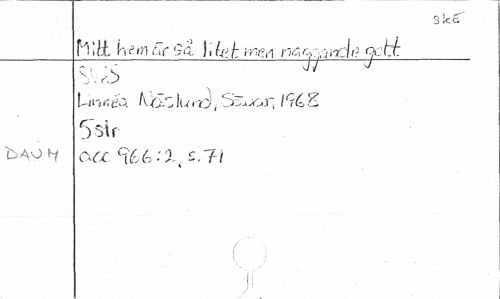 skä
Mitt hem är så litet men naggande gott
Linnéa Näslund, Sävar, 1968
5 str
DAUM acc 966:2, s. 71